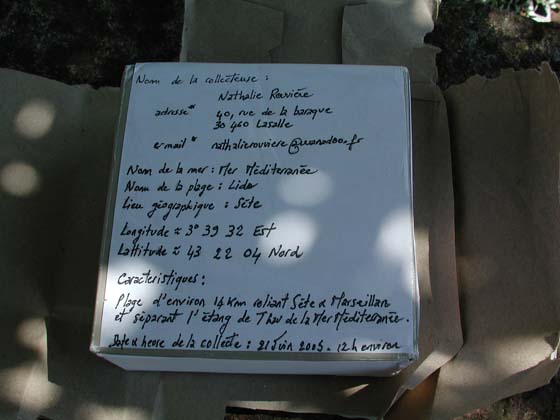 Nom de la collecteuse :
Nathalie Rouvière
adresse* 40, rue de la baraque
30 460 Lasalle
e-mail* nathalierouviere@wanadoo.fr
Nom de la mer : Mer Méditerranée
Nom de la plage : Lido
Lieu géographique : Sète
Longitude ≈ 3° 39 32 Est
Lattitude ≈ 43 22 04 Nord
Caractéristiques :
Plage d'environ 14 Km reliant Sète à Marseillan
et séparant l'étang de Thau de la Mer Méditerranée.
Date & heure de la collecte : 21 Juin 2005. 12h environ